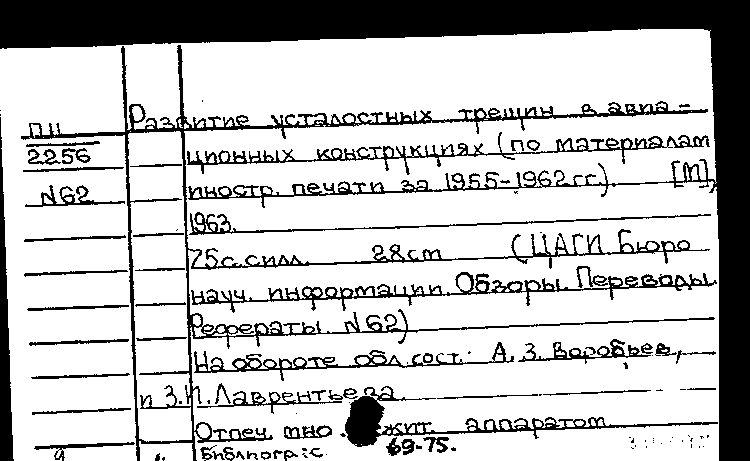 Развитие усталостных трещин в авиа-
П11
2256
ционных конструкциях (по материалам
N62
иностр. печати за 1955-1962гг.). [М],
1963.
75с.силл. 28см (ЦАГИ. Бюро
науч. информации. Обзоры. Переводы.
Рефераты. N62)
На обороте обл. сост.: А. З. Воробьев,
и З.И. Лаврентьева.
Отпеч. мно жит. аппаратом
Библиогр.: с. 69-75.